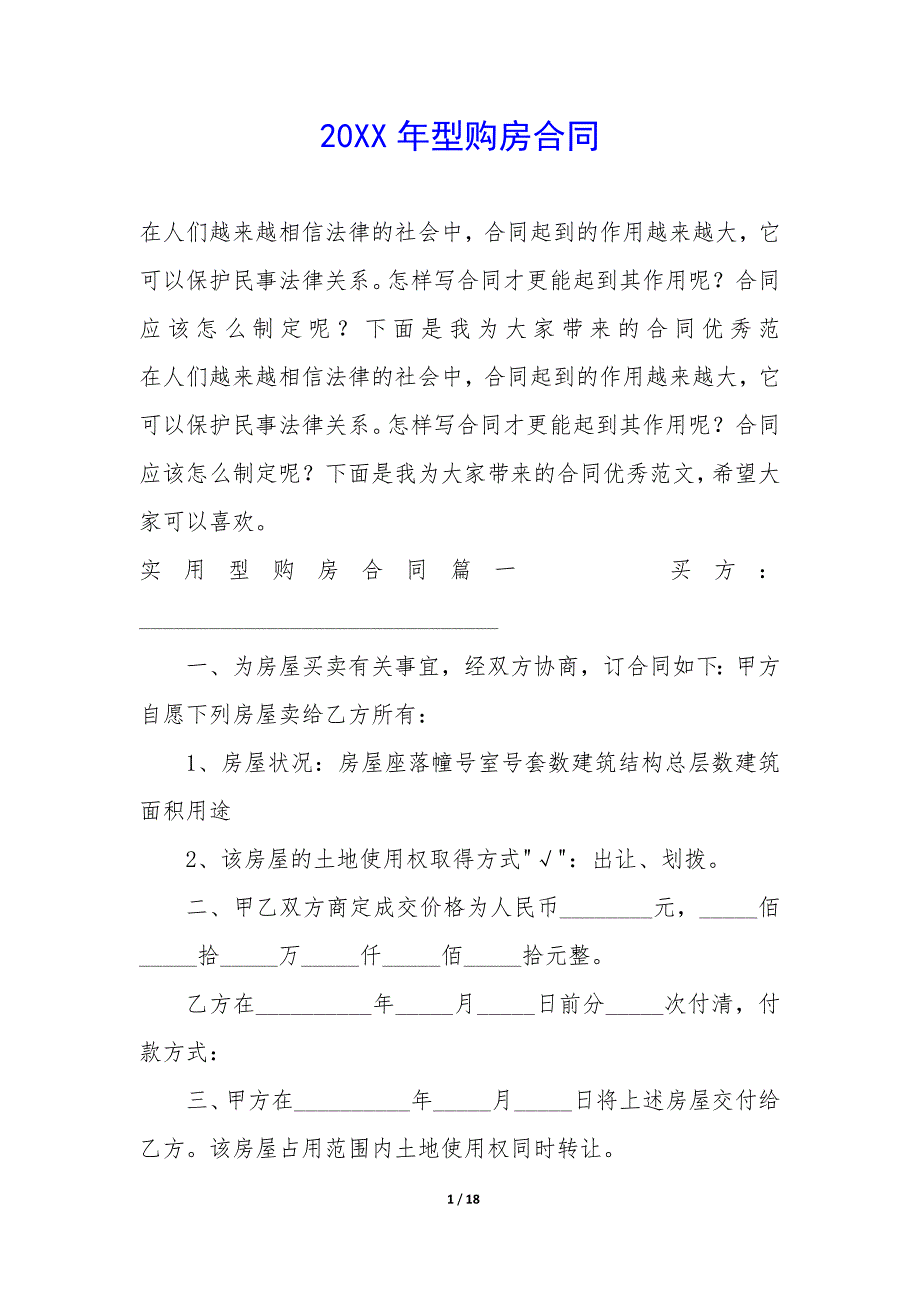 20XX 年型购房合同
在人们越来越相信法律的社会中，合同起到的作用越来越大，它
可以保护民事法律关系。怎样写合同才更能起到其作用呢？合同
应该怎么制定呢？下面是我为大家带来的合同优秀范
在人们越来越相信法律的社会中，合同起到的作用越来越大，它
可以保护民事法律关系。怎样写合同才更能起到其作用呢？合同
应该怎么制定呢？下面是我为大家带来的合同优秀范文，希望大
家可以喜欢。
实用型购房合同篇一 买方：
_______________________________
一、为房屋买卖有关事宜，经双方协商，订合同如下：甲方
自愿下列房屋卖给乙方所有：
1、房屋状况：房屋座落幢号室号套数建筑结构总层数建筑
面积用途
2、该房屋的土地使用权取得方式"√"：出让、划拨。
二、甲乙双方商定成交价格为人民币________元，_____佰
_____拾_____万_____仟_____佰_____拾元整。
乙方在__________年_____月_____日前分_____次付清，付
款方式：
三、甲方在__________年_____月_____日将上述房屋交付给
乙方。该房屋占用范围内土地使用权同时转让。
1 / 18